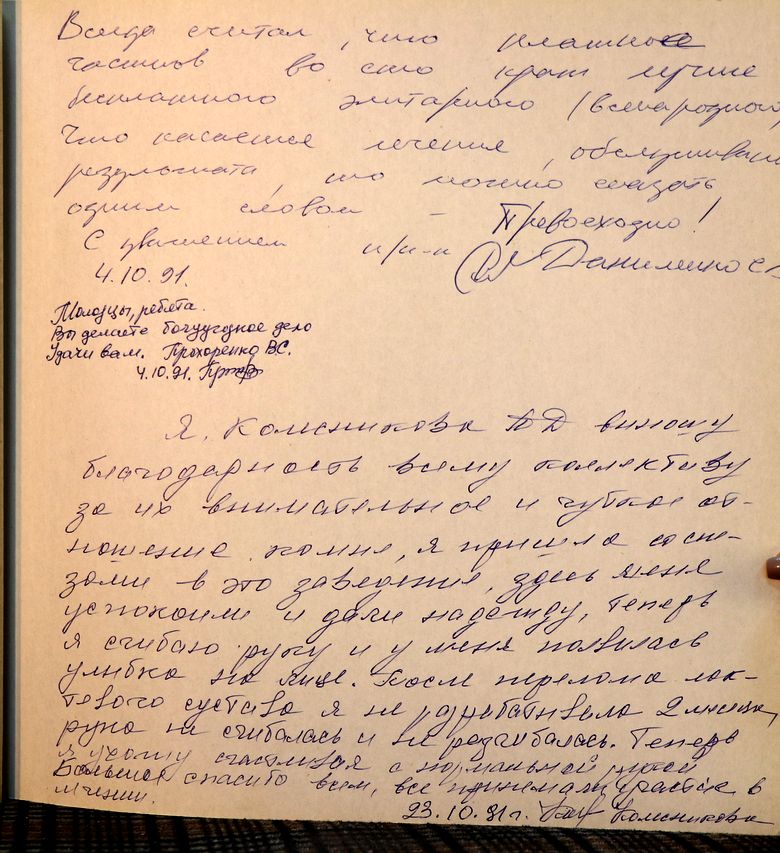 Всегда считал, что платное
частное во сто крат лучше
бесплатного элитарного (всенародного)
Что касается лечения, обслуживани
результата, то можно сказать
одним словом – Превосходно!
С уважением п/п-к Даниленко С.
4.10.91.
Молодцы, ребята.
Вы делаете богоугодное дело
Удачи вам. Прохоренко В.С.
4.10.91.
Я, Колесникова АД выношу
благодарность всему коллективу
за их внимательное и чуткое от-
ношение комне, я пришла сосле-
зами в это заведение, здесь меня
успокоили и дали надежду, теперь
я сгибаю руку и у меня появилась
улибка на лице. После перелома лок-
тевого сустава я не разрабатывала 2 месяца,
рука не сгибалась и не розгибалась. Теперь
я ухожу счастливая с нормальной рукой
Большое спасибо всем, все принемали участие в
лечении.
23.10.91г. Колесникова